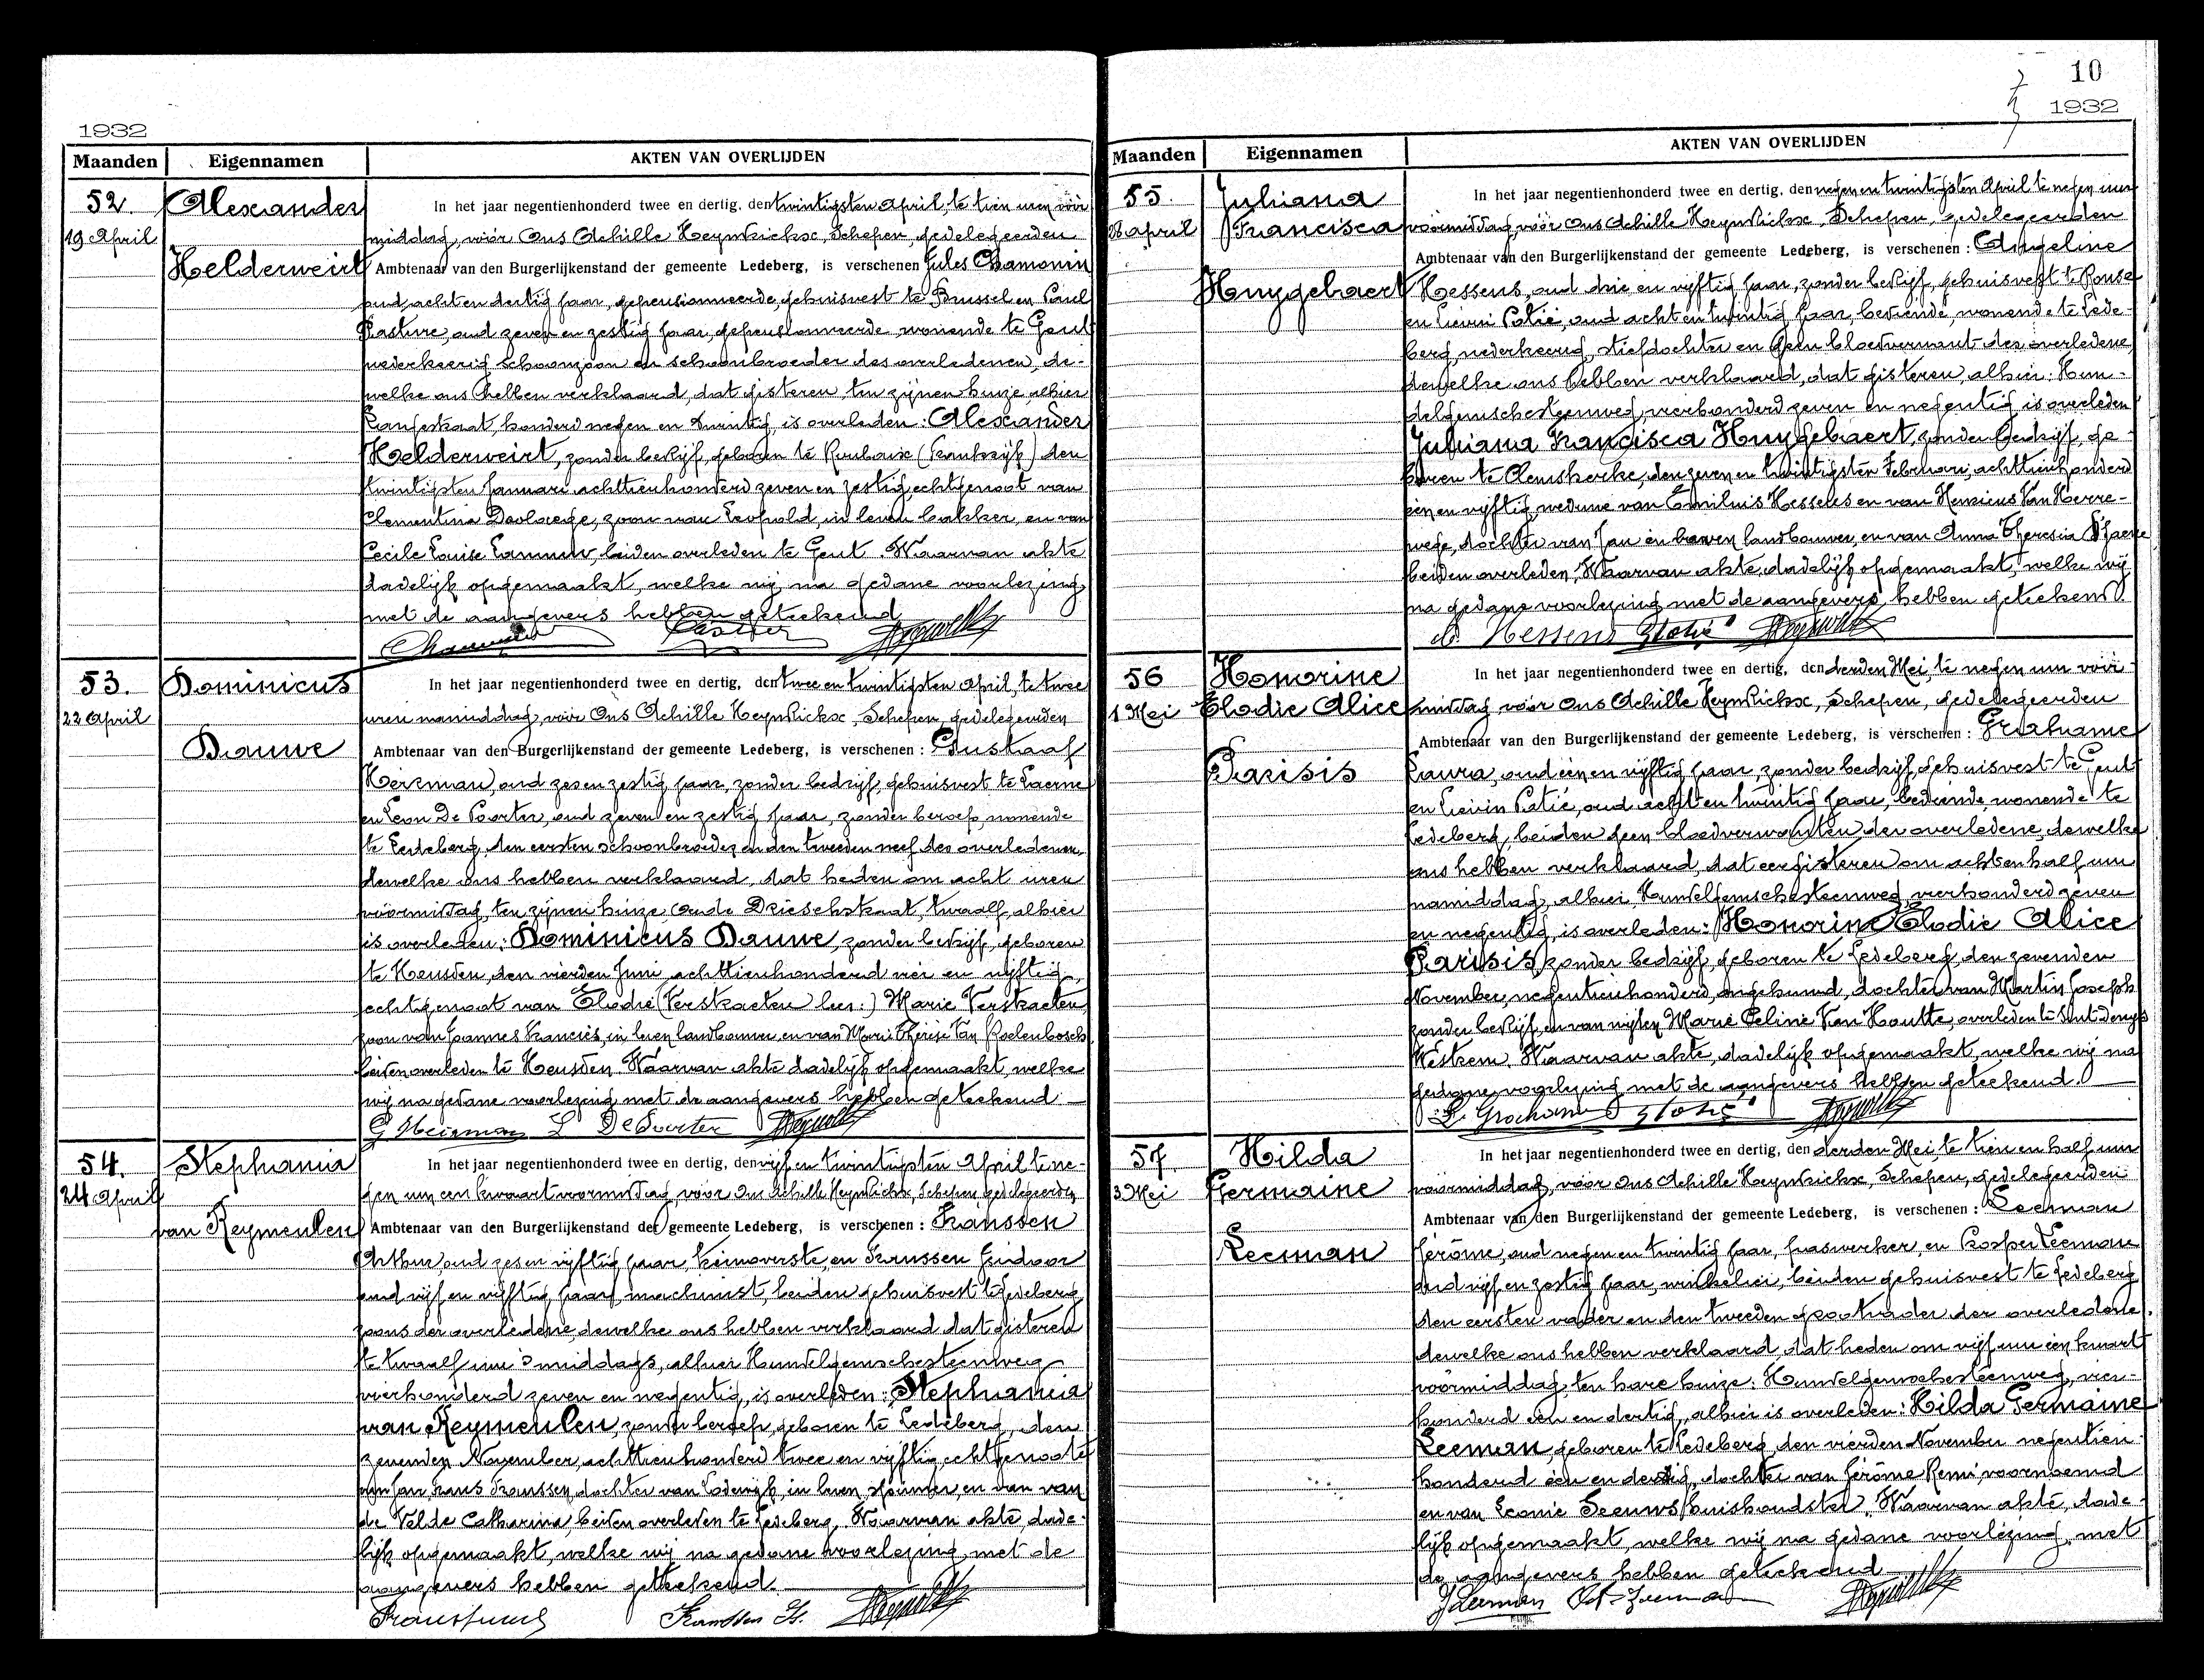 1932
Maanden Eigennamen AKTEN VAN OVERLIJDEN
52. Alexander
19 April
Helderweirt
In het jaar negentienhonderd twee en dertig, den twintigsten April, te tien uren vóór
middag, vóór Ons Achille Heynderickx, Schepen, gedelegeerden
Ambtenaar van den Burgerlijkenstand der gemeente Ledeberg, is verschenen Jules Chamonin
oud acht en dertig jaar, gepensionneerde, gehuisvest te Brussel en Paul
Pasture, oud zeven en zestig jaar, gepensionneerde wonende te Gent
wederkeerig schoonzoon en schoonbroeder des overledenen, de-
welke ons hebben verklaard, dat gisteren ten zijnen huize, alhier
honderd negen en twintig, is overleden: Alexander
Helderweirt, zonder bedrijf, geboren te Roubaix (Frankrijk) den
twintigsten Januari achttienhonderd zeven en zestig, echtgenoot van
Clementina zoon van Leopold, in leven bakker, en van
Cecile Louise beiden overleden te Gent. Waarvan akte
dadelijk opgemaakt, welke wij na gedane voorlezing
met de aangevers hebben geteekend
53. Dominicus
22 April
Dauwe
In het jaar negentienhonderd twee en dertig, den twee en twintigsten April, te twee
uren namiddag, vóór Ons Achille Heynderickx, Schepen, gedelegeerden
Ambtenaar van den Burgerlijkenstand der gemeente Ledeberg, is verschenen: Gustaaf
Heirman, oud zes en zestig jaar, zonder bedrijf, gehuisvest te Laerne
en Leon De Poorter, oud zeven en zestig jaar, zonder beroep, wonende
te Ledeberg, den eersten schoonbroeder en den tweeden neef des overledenen,
dewelke ons hebben verklaard, dat heden om acht uren
vóórmiddag, ten zijnen huize oude Drieschstraat, twaalf, alhier
is overleden: Dominicus Dauwe, zonder bedrijf, geboren
te Heusden, den vierden Juni achttienhonderd vier en vijftig,
echtgenoot van Elodie (Verstraeten lees:) Marie Verstraeten,
zoon van Joannes Francies, in leven landbouwer en van Marie Therese Van Poelenbosch
beiden overleden te Heusden. Waarvan akte dadelijk opgemaakt, welke
wij na gedane voorlezing met de aangevers hebben geteekend.
G Heirman L De Poorter
54. Stephania
24 April
van Reymeulen
In het jaar negentienhonderd twee en dertig, den vijf en twintigsten April te ne-
gen uur een kwaart voormiddag, vóór Ons Achille Heynderickx, Schepen, gedelegeerden
Ambtenaar van den Burgerlijkenstand der gemeente Ledeberg, is verschenen: Franssen
Arthur oud zes en vijftig jaar, treinoverste, en Franssen Isidoor
oud vijf en vijftig jaar, machinist, beiden gehuisvest te Ledeberg,
zoons der overledene, dewelke ons hebben verklaard dat gisteren
te twaalf uur 's middags, alhier Hundelgemschesteenweg
vierhonderd zeven en negentig, is overleden: Stephania
van Reymeulen, zonder beroep, geboren te Ledeberg, den
zevenden November, achttienhonderd twee en vijftig, echtgenoote
van Jan Frans Franssen, dochter van Lodewijk, in leven en van van
de Velde Catharina, beiden overleden te Ledeberg. Waarvan akte, dade-
lijk opgemaakt, welke wij na gedane voorlezing, met de
aangevers hebben geteekend.
Franssen Is.
10
1932
Maanden Eigennamen AKTEN VAN OVERLIJDEN
55. Juliana
28 April Francisca
Huygebaert
In het jaar negentienhonderd twee en dertig, den negen en twintigsten April te negen uur
vóórmiddag, vóór Ons Achille Heynderickx, Schepen, gedelegeerden
Ambtenaar van den Burgerlijkenstand der gemeente Ledeberg, is verschenen: Angeline
Hessens, oud drie en vijftig jaar, zonder bedrijf, gehuisvest te Ronse
en Lievin Potié, oud acht en twintig jaar, bediende, wonende te Lede-
berg, wederkeerig, stiefdochter en geen bloedverwant der overledene,
dewelke ons hebben verklaard, dat gisteren, alhier: Hun-
delgemschesteenweg, vierhonderd zeven en negentig is overleden
Juliana Francisca Huygebaert, zonder bedrijf, ge-
boren te Clemskerke, den zeven en twintigsten Februari, achttienhonderd
een en vijftig, weduwe van Emilius Hessens en van Henricus Van Herre-
wege, dochter van Jan in leven landbouwer, en van Anna Theresia
beiden overleden. Waarvan akte, dadelijk opgemaakt, welke wij
na gedane voorlezing met de aangevers hebben geteekend.
A. Hessens
56 Honorine
1 Mei Elodie Alice
Parisis
In het jaar negentienhonderd twee en dertig, den derden Mei, te negen uur vóór-
middag vóór Ons Achille Heynderickx, Schepen, gedelegeerden
Ambtenaar van den Burgerlijkenstand der gemeente Ledeberg, is verschenen:
Laura, oud een en vijftig jaar, zonder bedrijf, gehuisvest te Gent
en Lievin Potié, oud acht en twintig jaar, bediende, wonende te
Ledeberg, beiden geen bloedverwanten der overledene, dewelke
ons hebben verklaard, dat eergisteren om acht en half uur
namiddag, alhier, Hundelgemschesteenweg vierhonderd zeven
en negentig, is overleden: Honorine Elodie Alice
Parisis, zonder bedrijf, geboren te Ledeberg, den zevenden
November, negentienhonderd, ongehuwd, dochter van Martin Joseph
zonder bedrijf, en van wijlen Marie Celine Van Houtte, overleden te Sint-Denijs
Westrem. Waarvan akte, dadelijk opgemaakt, welke wij na
gedane voorlezing met de aangevers hebben geteekend.
57. Hilda
3 Mei Germaine
Leeman
In het jaar negentienhonderd twee en dertig, den derden Mei te tien en half uur
vóórmiddag, vóór Ons Achille Heynderickx, Schepen, gedelegeerden
Ambtenaar van den Burgerlijkenstand der gemeente Ledeberg, is verschenen: Leeman
Jérôme, oud negen en twintig jaar, gaswerker, en Prosper Leeman
oud vijf en zestig jaar, winkelier, beiden gehuisvest te Ledeberg
den eersten vader en den tweeden grootvader der overledene,
dewelke ons hebben verklaard, dat heden om vijf uur een kwart
vóórmiddag, ten hare huize: Hundelgemschesteenweg, vier-
honderd een en dertig, alhier is overleden: Hilda Germaine
Leeman, geboren te Ledeberg, den vierden November negentien-
honderd een en dertig, dochter van Jérôme Remi voornoemd
en van Leonie Seeuws, huishoudster. Waarvan akte, dade-
lijk opgemaakt, welke wij na gedane voorlezing met
de aangevers hebben geteekend
J Leeman